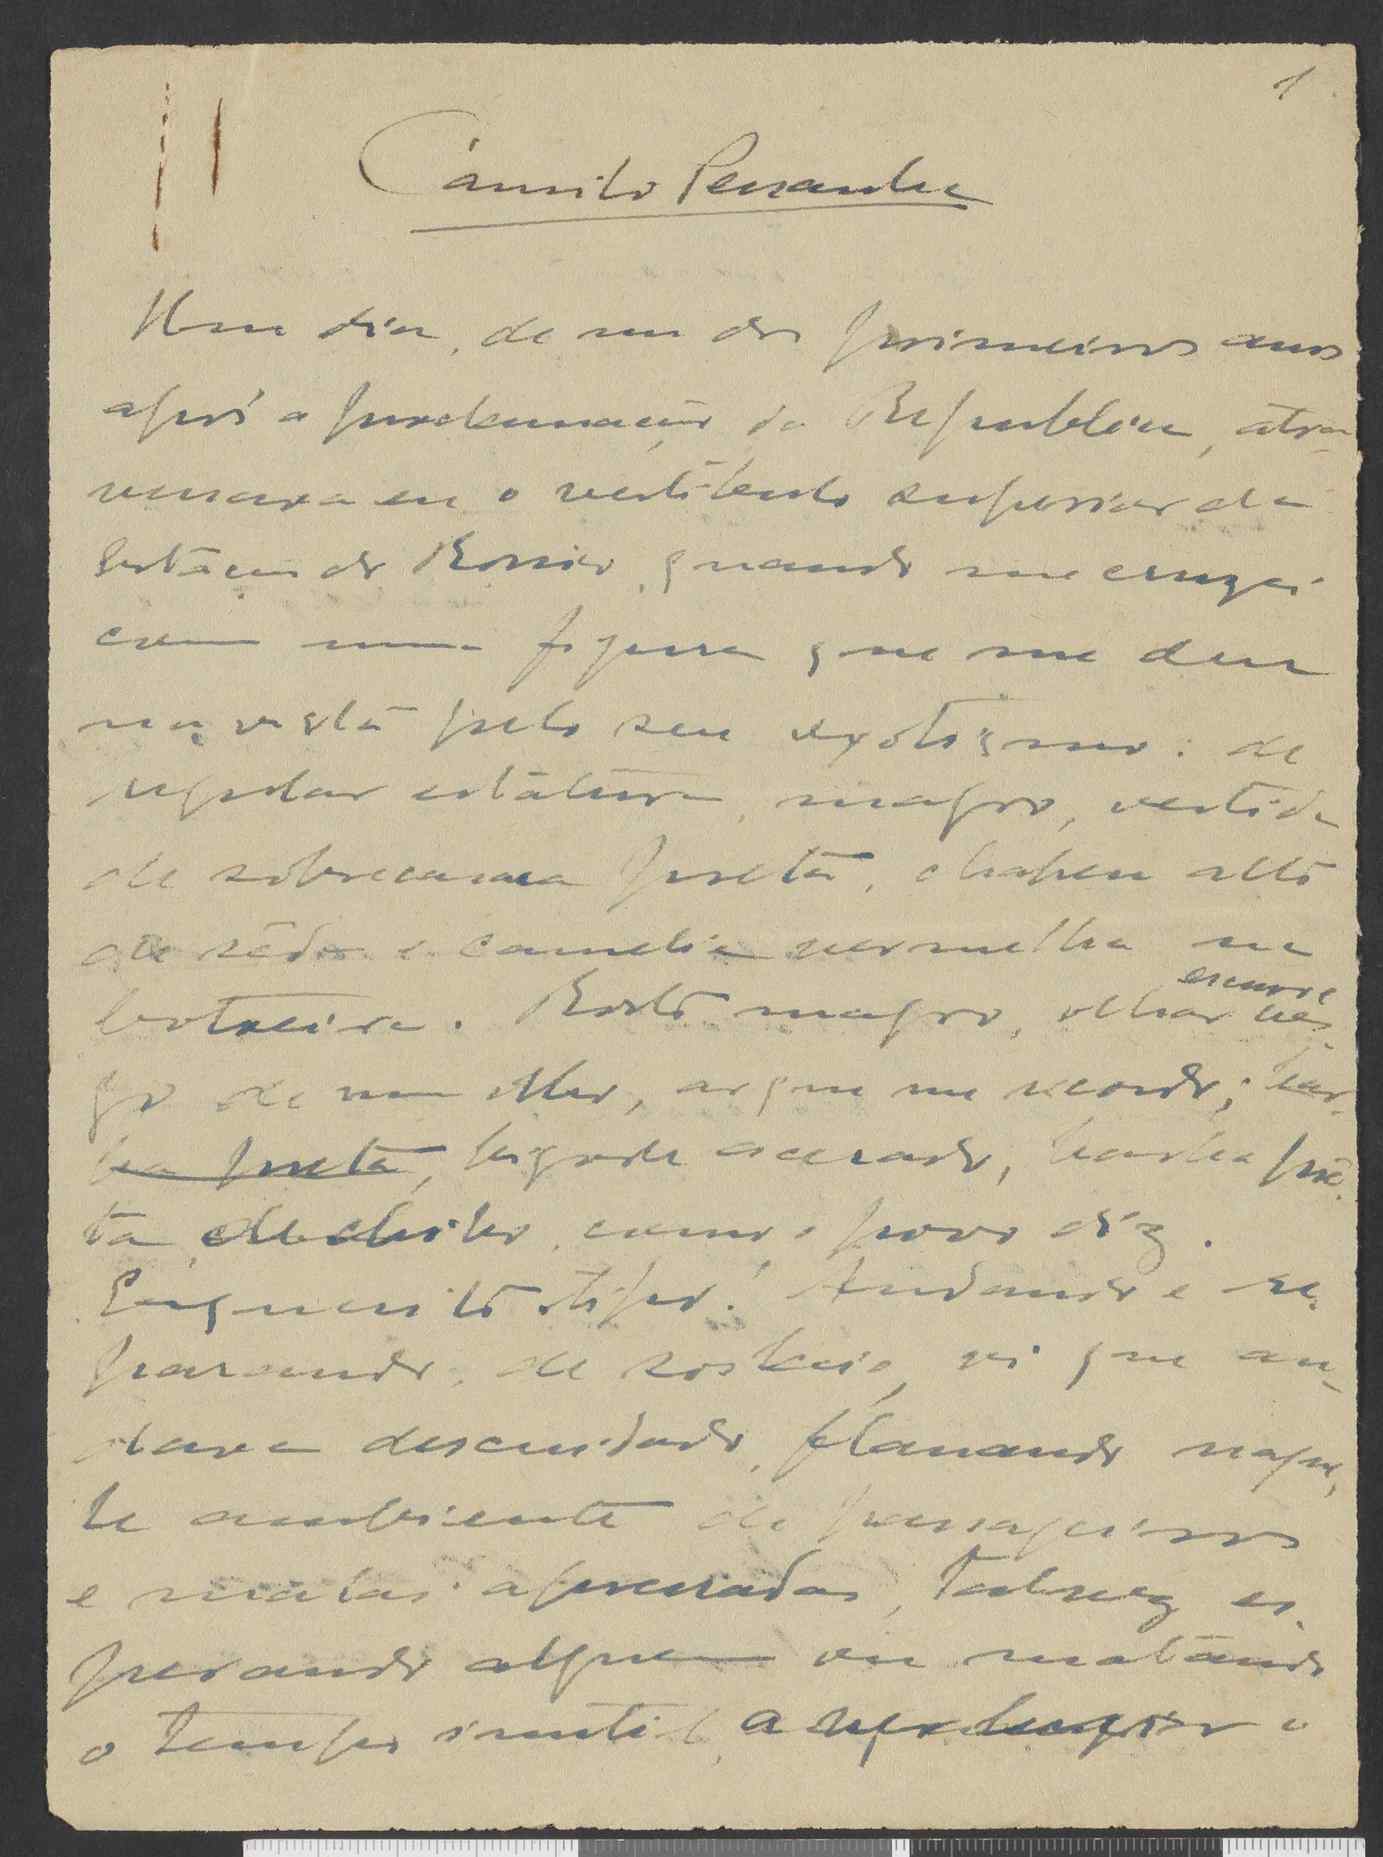 1
Camilo Pessanha
Um dia, de um dos primeiros anos
após a proclamação da Republica, atra-
vessava eu o vestibulo superior da
Estação do Rossio, quando me cruzei
com uma figura que me deu
na vista pelo seu exotismo: de
regular estatura, magro, vestido
de sobrecasaca preta, chapeu alto
de sêda e camelia vermelha na
botoeira. Rosto magro, olhar escuro ves-
go de um olho, ao que me recordo; bar-
ba preta, bigode acerado, barba pre-
ta, como o povo diz.
Exquisito tipo! Andando e re-
parando, de soslaio, vi que an-
dava descuidado, flanando naque-
le ambiente de passageiros
e malas apressadas, talvez es-
perando alguem ou matando
o tempo inutil, a o